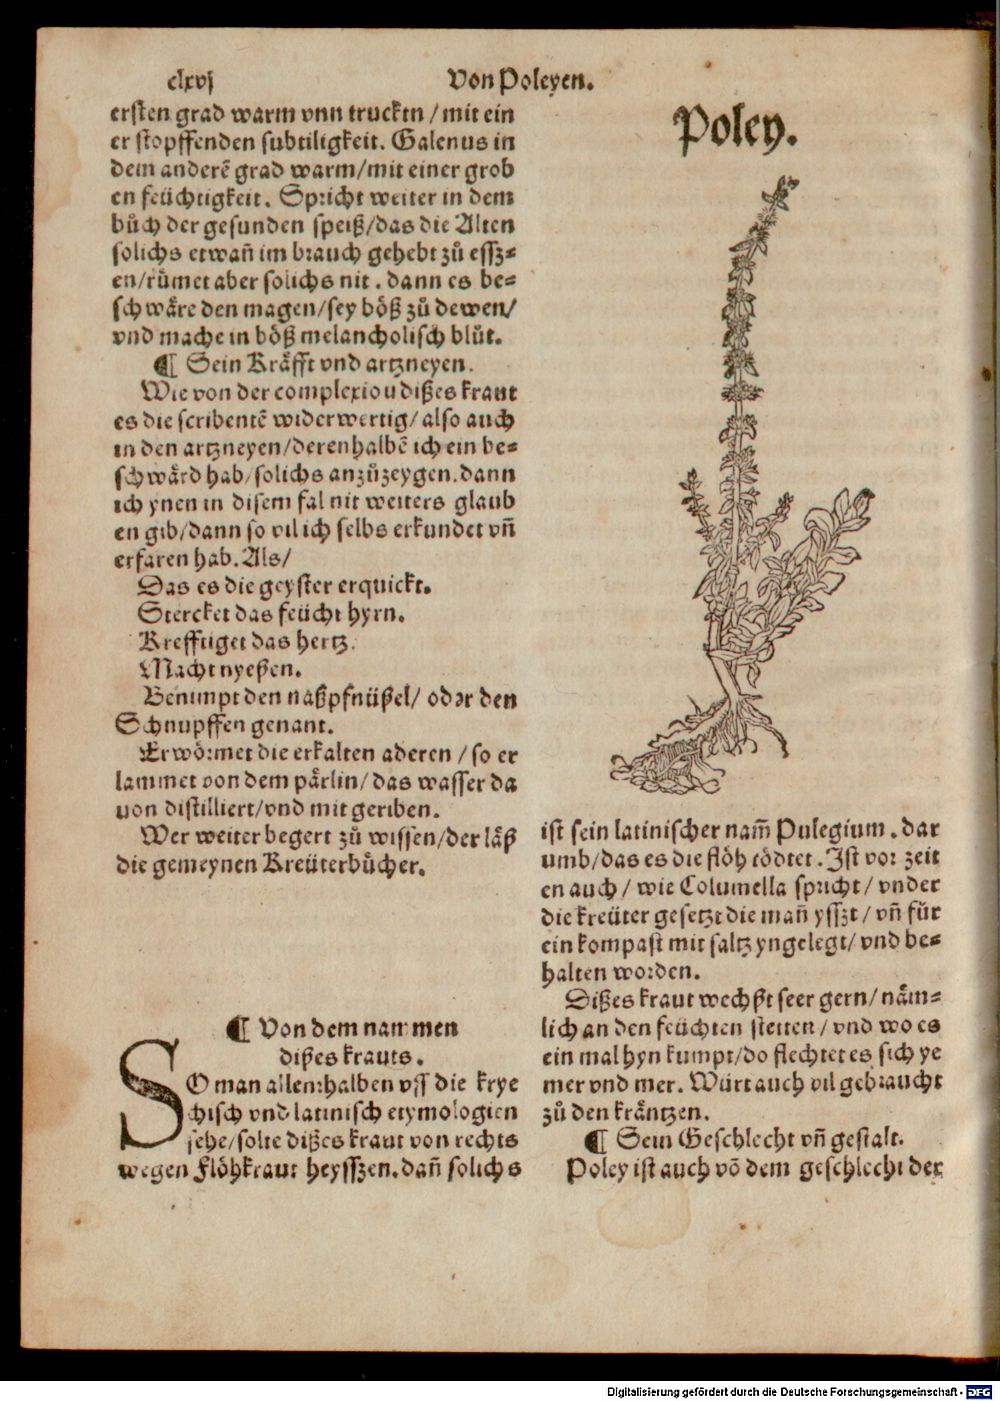 clxvj
Von Poleyen.
ersten grad warm vnn truckẽn / mit ein
er stopffenden subtiligkeit. Galenus in
dem anderẽ grad warm/mit einer grob
en feüchtigkeit. Spricht weiter in dem
bůch der gesunden speiß/das die Alten
solichs etwañ im brauch gehebt zů essz⸗
en/růmet aber solichs nit. dann es be⸗
schwåre den magen/sey böß zů dewen/
vnd mache in böß melancholisch blůt.
¶ Sein Kråfft vnd artzneyen.
Wie von der complexiou dißes kraut
es die scribentẽ widerwertig/also auch
in den artzneyen/derenhalbẽ ich ein be⸗
schwård hab/solichs anzůzeygen.dann
ich ynen in disem fal nit weiters glaub
en gib/dann so vil ich selbs erkundet vñ
erfaren hab. Als/
Das es die geyster erquickt.
Stercket das feücht hyrn.
Krefftiget das hertz.
Macht nyeßen.
Benimpt den naßpfnüßel/ oder den
Schnupffen genant.
Erwörmet die erkalten aderen / so er
lammet von dem pårlin/ das wasser da
von distilliert/vnd mit geriben.
Wer weiter begert zů wissen/der låß
die gemeynen Kreüterbůcher.
¶ Von dem nammen
dißes krauts.
SO man allenthalben vss die krye
chisch vnd latinisch etymologien
sehe/solte dißes kraut von rechts
wegen Flöhkraut heysszen.dañ solichs
Poley.
ist sein latinischer nam̃ Pulegium. dar
umb/das es die flöh tödtet. Ist vor zeit
en auch / wie Columella spricht/ vnder
die kreüter gesetzt die mañ ysszt/ vñ für
ein kompast mit saltz yngelegt/ vnd be⸗
halten worden.
Dißes kraut wechßt seer gern/ nåm⸗
lich an den feüchten stetten / vnd wo es
ein mal hyn kumpt/do flechtet es sich ye
mer vnd mer. Würt auch vil gebraucht
zů den kråntzen.
¶ Sein Geschlecht vñ gestalt.
Poley ist auch võ dem geschlecht der
Digitalisierung gefördert durch die Deutsche Forschungsgemeinschaft - DFG